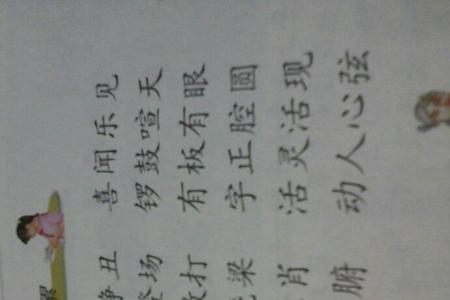 丑 喜闻乐见
场 锣鼓喧天
打 有板有眼
梁 字正腔圆
肖 活灵活现
腑 动人心弦